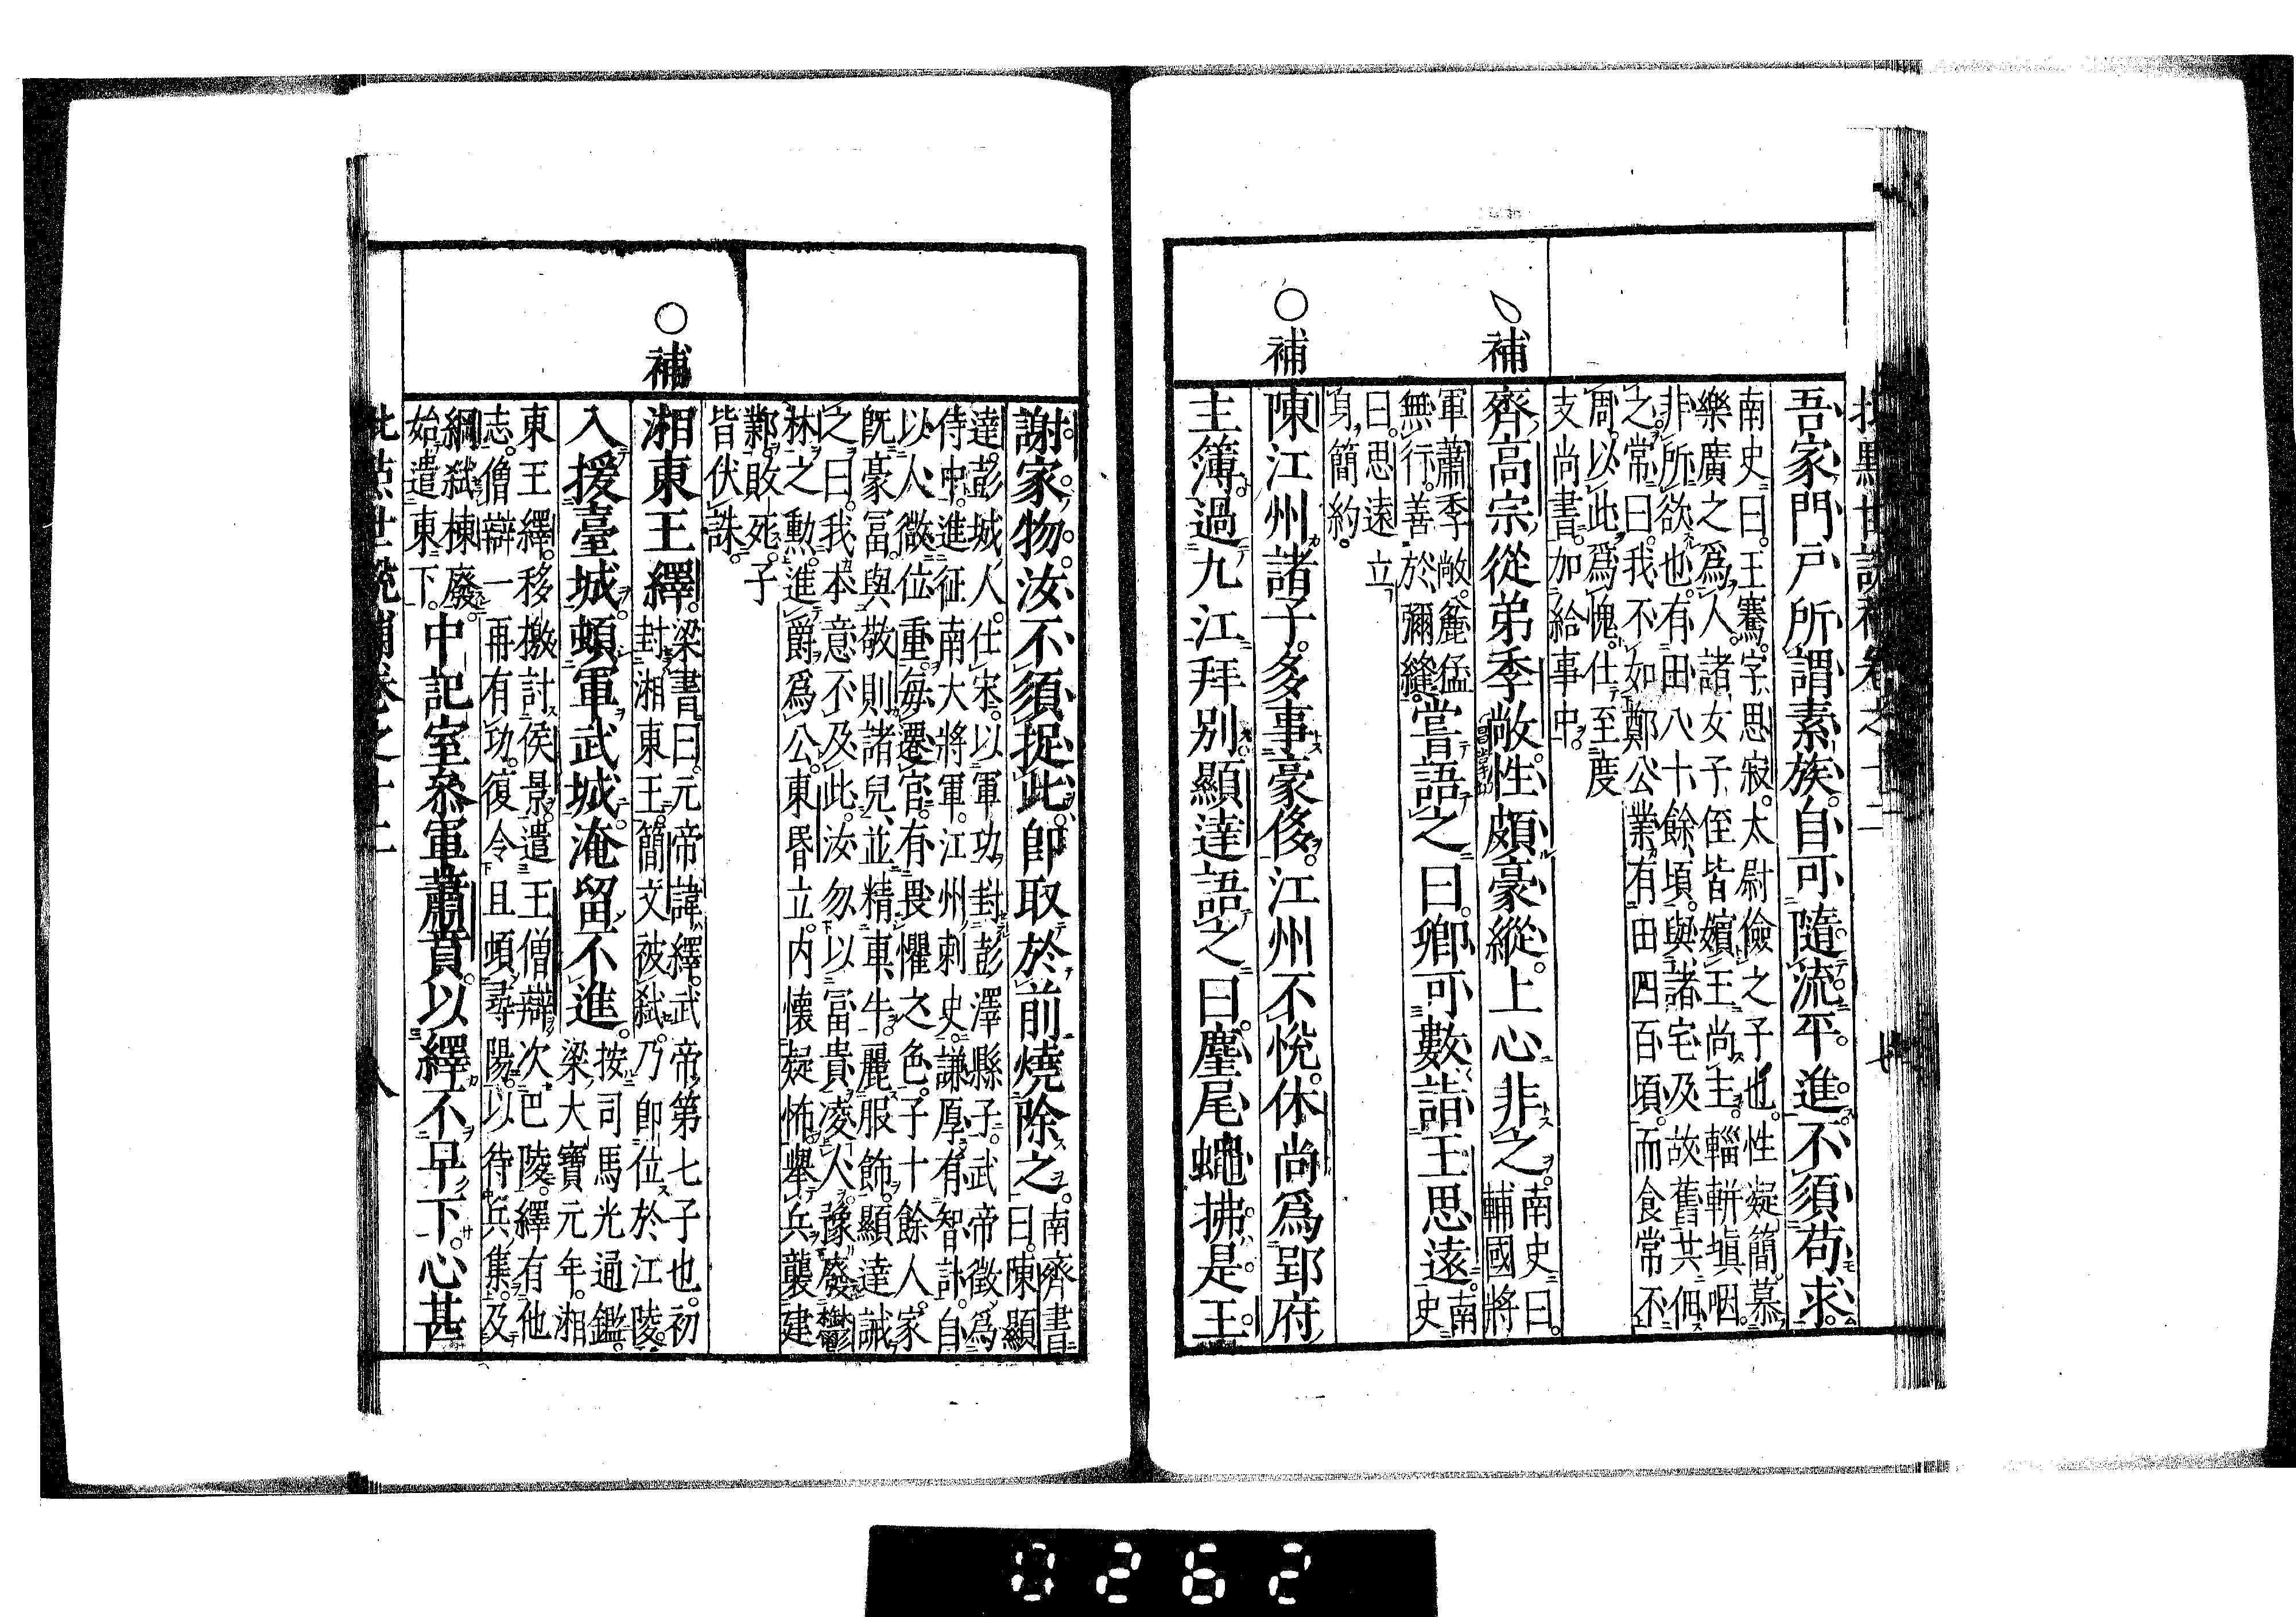 吾家門戸所謂素族自可隨流平進不須苟求
南史曰王騫字思寂太尉儉之子也性凝簡慕
樂廣之爲人諸女子侄皆嬪王尚主輜軿塡咽
非所欲也有田八十餘頃與諸宅及故舊共佃
之常曰我不如鄭公業有田四百頃而食常不
周以此爲愧仕至度
支尚書加給事中
補
齊高宗從弟季敞性頗豪縱上心非之
南史曰
輔國將
軍蕭季敞麄猛
無行善於彌縫
嘗語之曰卿可數詣王思遠
南史
曰思遠立
身簡約
補
陳江州諸子多事豪侈江州不悅休尚爲郢府
主簿過九江拜別顯達語之曰麈尾蠅拂是王
謝家物汝不須捉此卽取於前燒除之
南齊書
曰陳顯
達彭城人仕宋以軍功封彭澤縣子武帝徵爲
侍中進征南大將軍江州刺史謙厚有智計自
以人微位重每遷官有畏懼之色子十餘人家
旣豪冨與敬則諸兒並精車牛麗服飾顯達誡
之曰我本意不及此汝勿以冨貴凌人豫廢鬱
林之勳進爵爲公東昏立内懐疑怖擧兵襲建
鄴敗死子
皆伏誅
補
湘東王繹
梁書曰元帝諱繹武帝第七子也初
封湘東王簡文被弑乃卽位於江陵
入援臺城頓軍武城淹留不進
按司馬光通鑑
梁大寶元年湘
東王繹移檄討侯景遣王僧辯次巴陵繹有他
志僧辯一再有功復令且頓尋陽以待兵集及
綱弑棟廢
始遣東下
中記室參軍蕭賁以繹不早下心甚
批點世說補卷之十二
八